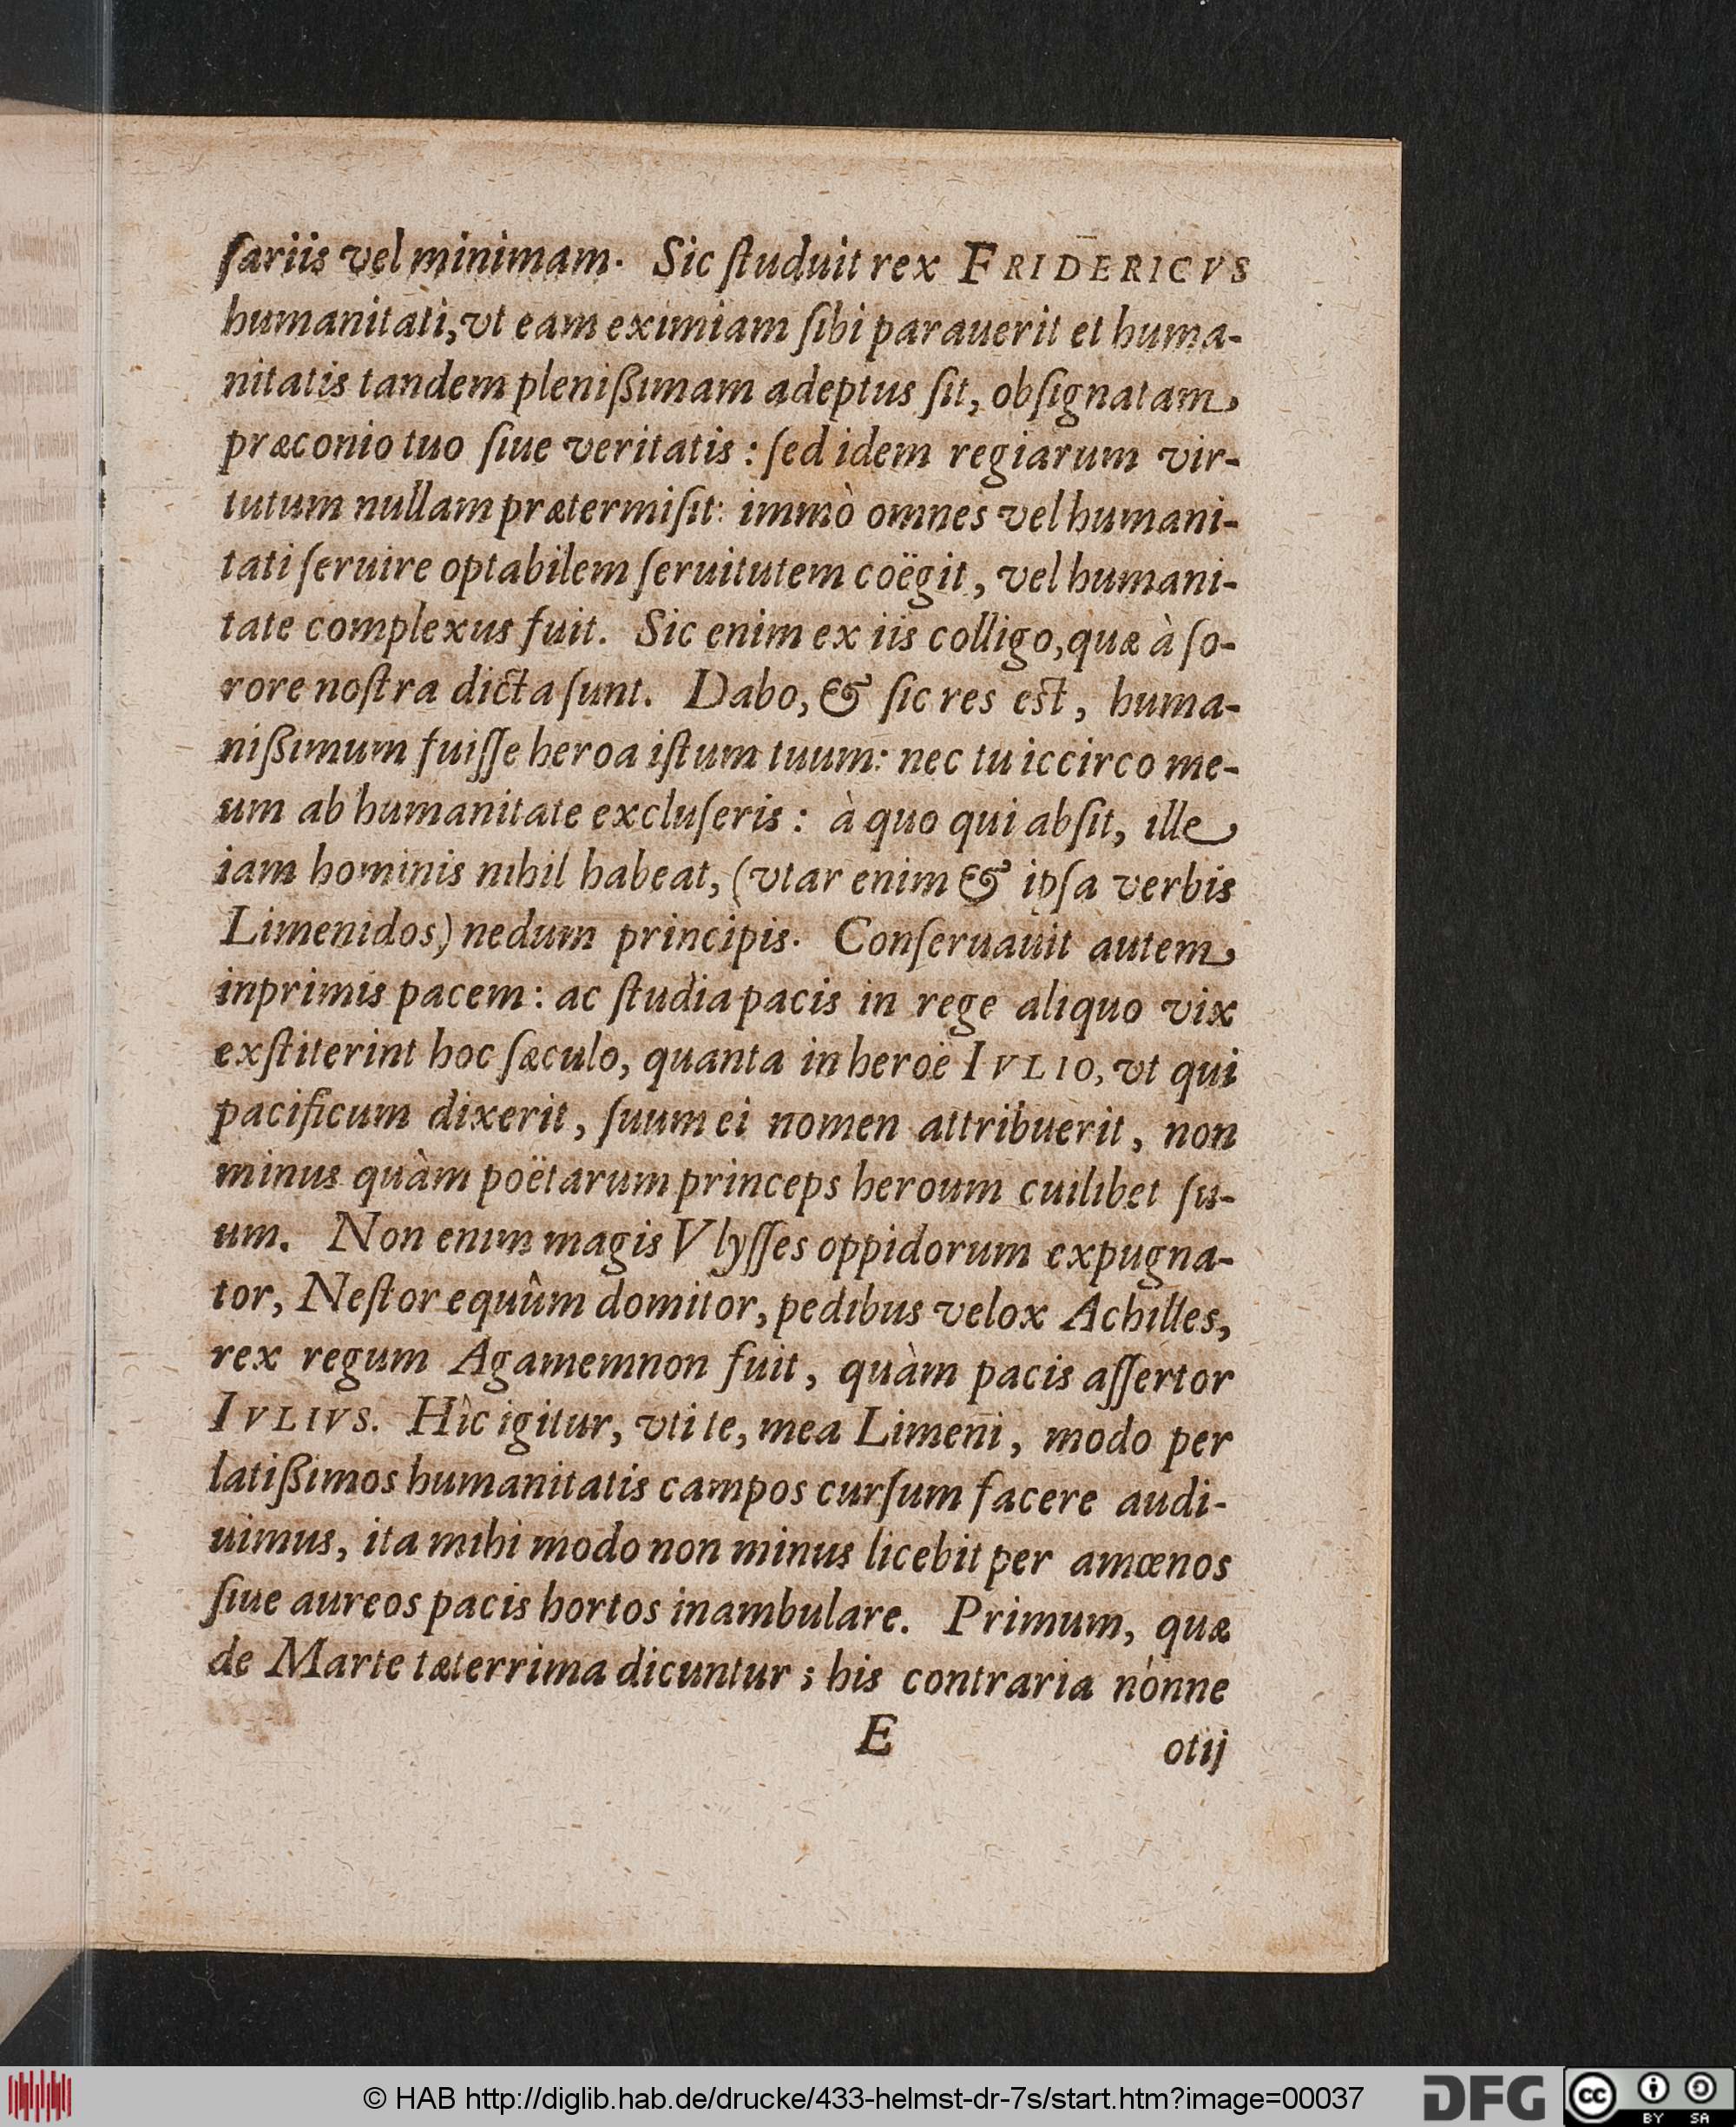 ſariis vel minimam. Sic ſtuduit rex FRIDERICVS
humanitati, vt eam eximiam ſibi parauerit et huma-
nitatis tandem pleniſſimam adeptus ſit, obſignatam
præconio tuo ſiue veritatis : ſed idem regiarum vir-
tutum nullam prætermiſit: immò omnes vel humani-
tati ſeruire optabilem ſeruitutem coëgit, vel humani-
tate complexus fuit. Sic enim ex iis colligo, quæ à ſo-
rore noſtra dicta ſunt. Dabo, & ſic res est, huma-
nißimum fuiſſe heroa iſtum tuum: nec tu iccirco me-
um ab humanitate excluſeris : à quo qui abſit, ille
iam hominis nihil habeat, (vtar enim & ipſa verbis
Limenidos) nedum principis. Conſeruauit autem
inprimis pacem : ac ſtudia pacis in rege aliquo vix
exſtiterint hoc ſæculo, quanta in heroë IVLIO, vt qui
pacificum dixerit, ſuum ei nomen attribuerit, non
minus quàm poëtarum princeps heroum cuilibet ſu-
um. Non enim magis Vlyſſes oppidorum expugna-
tor, Neſtor equûm domitor, pedibus velox Achilles,
rex regum Agamemnon fuit, quàm pacis aſſertor
IVLIVS. Hîc igitur, vti te, mea Limeni, modo per
latißimos humanitatis campos curſum facere audi-
uimus, ita mihi modo non minus licebit per amœnos
ſiue aureos pacis hortos inambulare. Primum, quæ
de Marte tæterrima dicuntur ; his contraria nónne
E otij
© HAB http://diglib.hab.de/drucke/433-helmst-dr-7s/start.htm?image=00037
DFG
cc BY SA